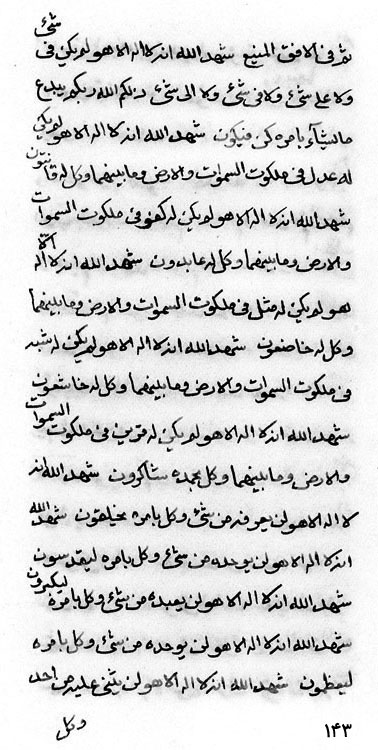 شئ
ثم فی الافق المنیع شهد الله انه لا اله الا هو لم یکن فی
ولا علی شئ ولا فی شئ ولا الی شئ ذلکم الله ربکم یبدع
مایشآء بامره کن فیکون شهد الله انه لا اله الا هو لم یکن
له عدل فی ملکوت السموات والارض ومابینهما وکل له قانتون
شهد الله انه لا اله الا هو لم یکن له کفو فی ملکوت السموات
والارض ومابینهما وکل له عابدون شهد الله انه لا اله الا
هو لم یکن له مثل فی ملکوت السموات والارض ومابینهما
وکل له خاضعون شهد الله انه لا اله الا هو لم یکن له شبه
فی ملکوت السموات والارض ومابینهما وکل له خاشعون
شهد الله انه لا اله الا هو لم یکن له قرین فی ملکوت السموات
والارض ومابینهما وکل بحمده شاکرون شهد الله انه
لا اله الا هو لن یعرفه من شئ وکل بامره یخلقون شهد الله
انه لا اله الا هو لن یوحده من شئ وکل بامره لیقدسون
شهد الله انه لا اله الا هو لن یعبده من شئ وکل بامره لیکبرون
شهد الله انه لا اله الا هو لن یوحده من شئ وکل بامره
لیعظمون شهد الله انه لا اله الا هو لن یثنی علیه من احد
وکل
۱۴۳